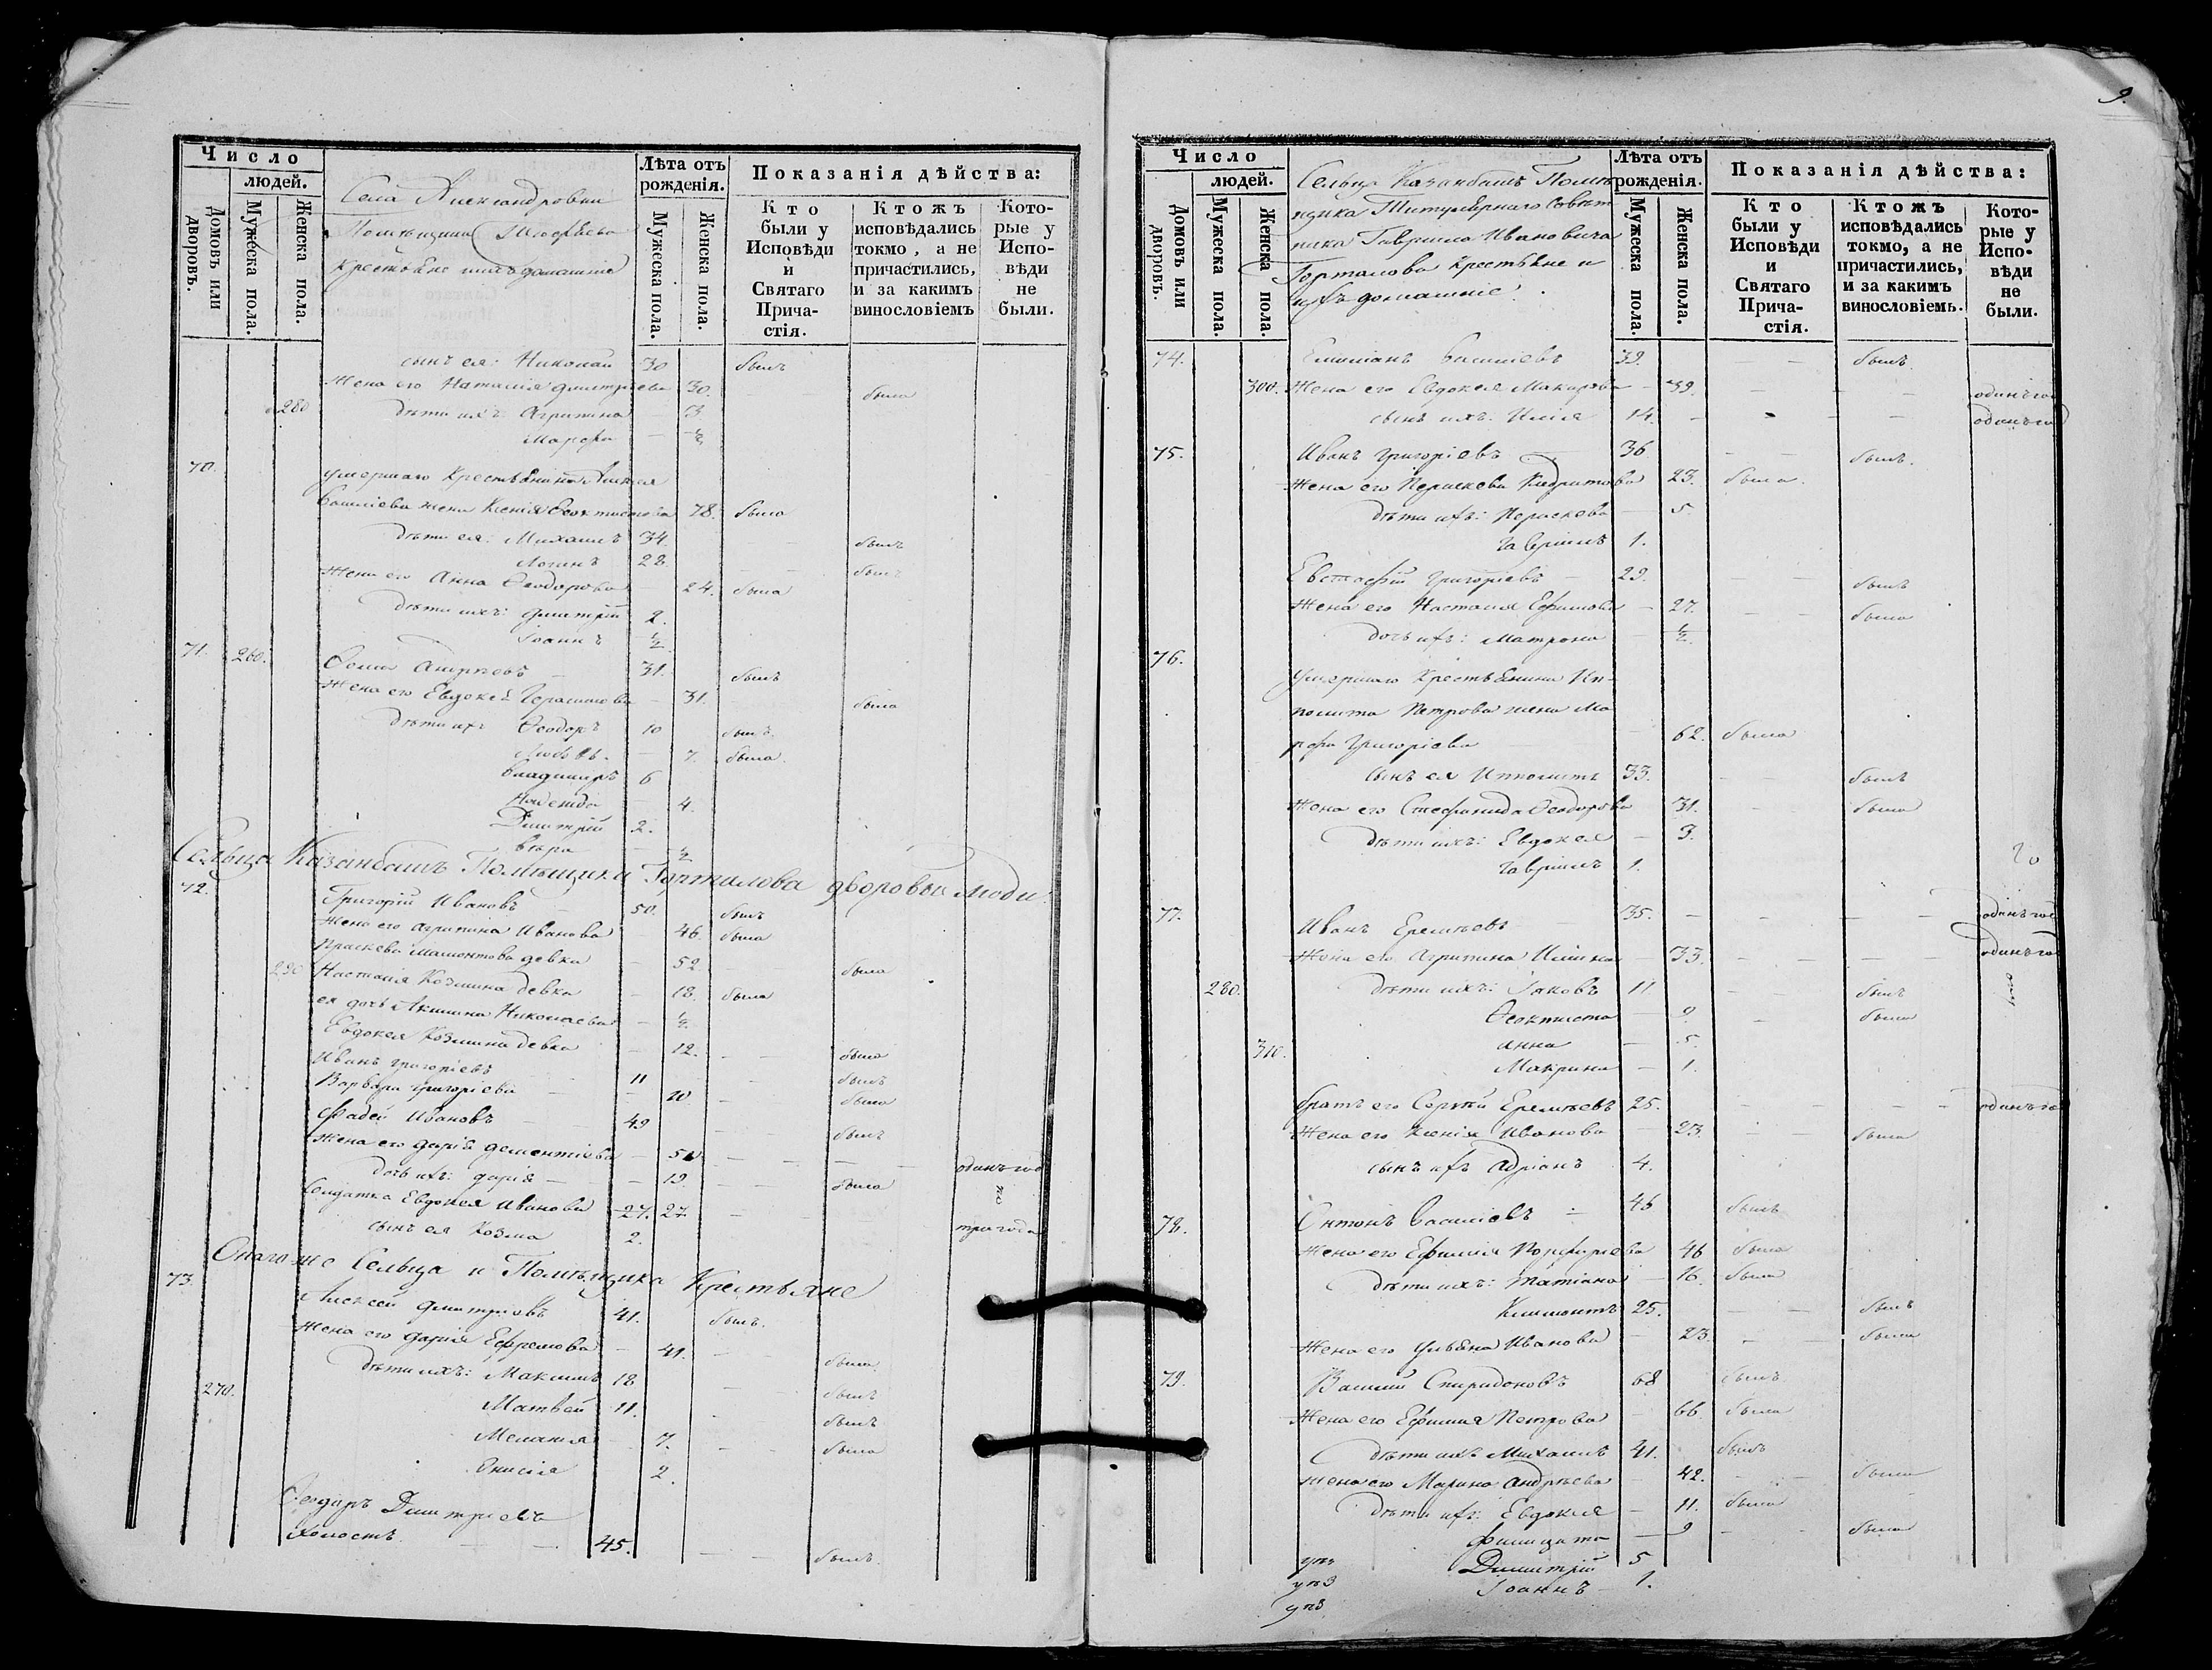 Число
людей.
Домовъ или дворовъ.
Мужеска пола.
Женска пола.
Села Александровки
Помѣщицы
Крестьяне и ихъ домашніе
Лѣта отъ рожденія.
Мужеска пола.
Женска пола.
Показанія дѣйства:
Кто были у Исповѣди и Святаго Причастія.
Ктожъ исповѣдались токмо, а не причастились, и за какимъ винословіемъ
Которые у Исповѣди не были.
сынъ ея: Николай 30 былъ
Жена его Наталія Дмитріева 30. была
280 дѣти ихъ: Агрипина — 3
Марфа — ½
70. умершаго Крестьянина Алексея
Василіева жена Ксенія Феоктистова 78. была
дѣти ея: Михаилъ 34. былъ
Логинъ 28. былъ
Жена его Анна Феодорова 24. была
дѣти ихъ: Дмитрій 2.
Іоаннъ ½
71. 260. Фома Андреевъ 31. былъ
Жена его Евдокея Герасимова — 31. была
дѣти ихъ Феодоръ 10 былъ
Любовь — 7. была.
Владимиръ 6
Надежда — 4.
Дмитрій 2.
Вѣра — ½
Сельца Казанбашъ Помѣщика Горталова дворовые люди.
72. Григорій Ивановъ 50. былъ
Жена его Агрипина Иванова 46. была
Праскева Мамонтова девка — 52. была
290 Настасія Козмина девка — 18. была
ея дочь Акилина Николаева — ½
Евдокея Козмина девка — 12. была
Иванъ Григоріевъ 11 былъ
Варвара Григоріева — 10 — была
Фадей Ивановъ 49 былъ
Жена его Дарія Дементіева — 50 — — — одинъ го
дочь ихъ: Дарія — 19. — была
Солдатка Евдокея Иванова 27. 27 — три года
сынъ ея Козма 2.
Онаго же Сельца и Помѣщика Крестьяне
73. Алексей Дмитріевъ 41. былъ.
Жена его Дарія Ефремова — 41. была
дѣти ихъ: Максимъ 18 былъ
270. Матвей 11. былъ
Меланія — 7. была
Анисія 2.
Феодоръ Дмитріевъ
Холостъ — 45. — былъ.
9.
Число
людей.
Домовъ или дворовъ.
Мужеска пола.
Женска пола.
Сельца Казанбашъ Помѣ
щика Титулярнаго Совѣт
ника Гаврила Ивановича
Горталова Крестьяне и
ихъ домашніе.
Лѣта отъ рожденія.
Мужеска пола.
Женска пола.
Показанія дѣйства:
Кто были у Исповѣди и Святаго Причастія.
Ктожъ исповѣдались токмо, а не причастились, и за какимъ винословіемъ.
Которые у Исповѣди не были.
74. Емиліанъ Василіевъ 39. — былъ.
300. Жена его Евдокея Макарова — 39. — — одинъ го
сынъ ихъ: Илія 14. — — одинъ го
75. Иванъ Григоріевъ 36 — былъ.
Жена его Параскева Кодратова 23. была.
дѣти ихъ: Параскева — 5.
Гавріилъ 1.
Евстафій Григоріевъ — 29. — былъ
Жена его Настасія Ефимова — 27. — была
дочь ихъ: Матрона — ½
76. Умершаго Крестьянина Ип-
полита Петрова жена Ма
рфа Григоріева — 62. была
сынъ ея Ипполитъ 33. — былъ
Жена его Стефанида Феодорова 31. — была
дѣти ихъ: Евдокея — 3.
Гавріилъ 1.
77. Иванъ Еремѣевъ 35. — — одинъ го
Жена его Агрипина Ильина — 33. — — одинъ го
280. дѣти ихъ: Іаковъ 11 — былъ
Феоктиста — 9. — была
310. Анна — 5.
Макрина — 1.
братъ его Сергѣй Еремѣевъ 25. — — одинъ го
Жена его Ксенія Иванова — 23. — была
сынъ ихъ Адріанъ 4.
78. Антонъ Василіевъ 45 былъ
Жена его Ефимія Порфиріева 46 была
дѣти ихъ: Татіана — 16. была
Климонтъ 25. — былъ
Жена его Ульяна Иванова — 23. — была
79. Василій Спиридоновъ 68 былъ
Жена его Ефимія Петрова — 66. была
дѣти ихъ Михаилъ 41. былъ
Жена его Марина Андрѣева — 42. — была
дѣти ихъ: Евдокея — 11. была
Филицата — 9 — была
Дмитрій 5
Іоаннъ 1.